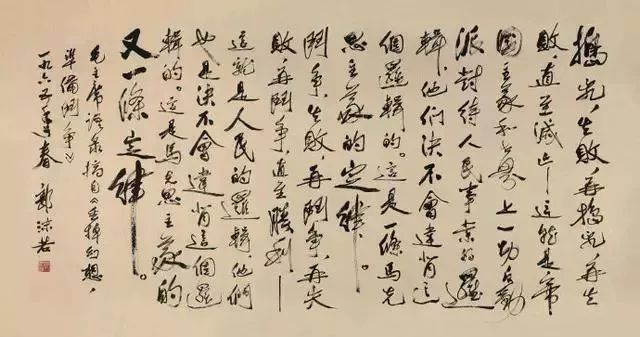 搗亂,失敗,再搗亂,再失
敗,直至滅亡——這就是帝
國主義和世界上一切反動
派對待人民事業的邏
輯,他們決不會違背這
個邏輯的。這是一條馬克
思主義的定律。
鬥爭,失敗,再鬥爭,再失
敗,再鬥爭,直至勝利——
這就是人民的邏輯,他們
也是決不會違背這個邏
輯的。這是馬克思主義的
又一條定律。
毛主席語录摘自《丟掉幻想,
準備鬥爭》
一九六五年春 郭沫若